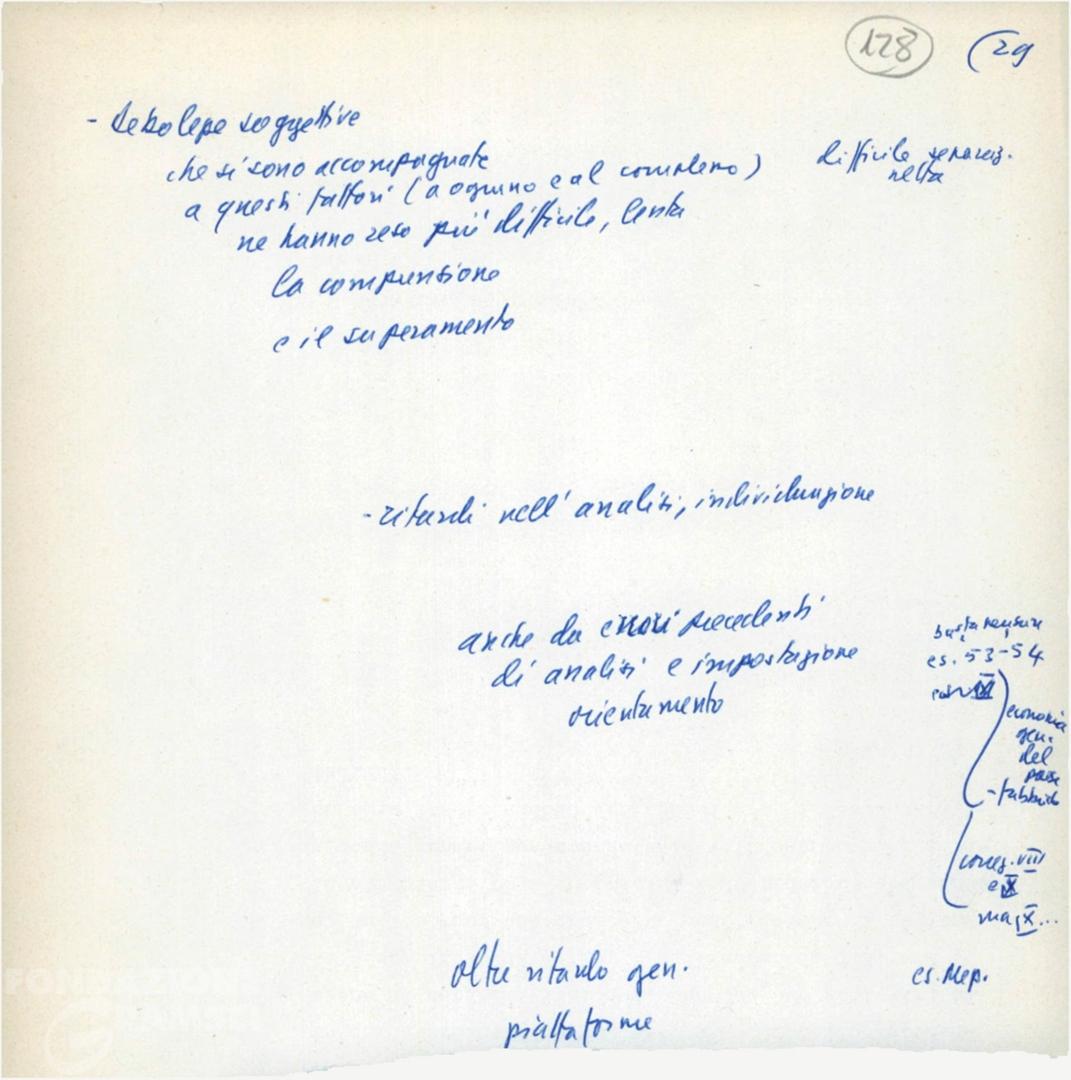 128 (29
- debolezze soggettive
che si sono accompagnate
a questi fattori (a ognuno e al complesso)
difficile separaz.
netta
ne hanno reso più difficile, lenta
la comprensione
e il superamento
- ritardi nell'analisi, individuazione
anche da errori precedenti
di analisi e impostazione
orientamento
es. 53-54
economia
gen.
del
paese
- fabbrica
congr. VIII
e IX
ma, X...
oltre ritardo gen.
es. Mep.
piattaforme
FONDAZIONE
GRAMSCI